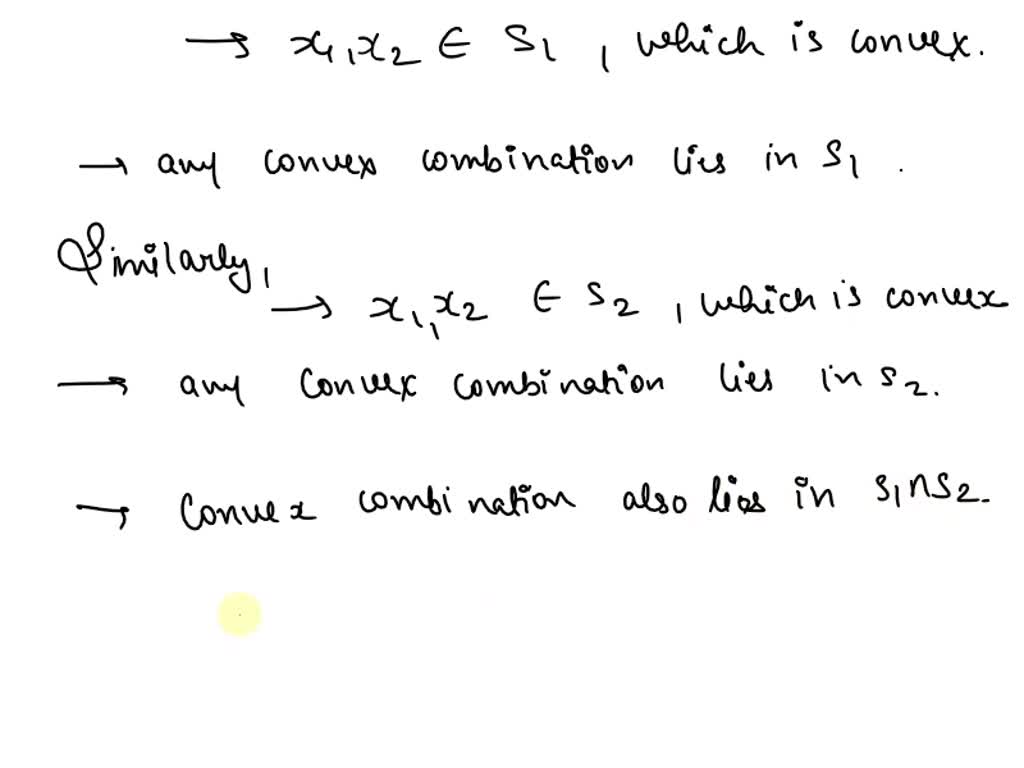 → x₁,x₂ ∈ S₁, which is convex.
→ any convex combination lies in S₁.
Similarly,
→ x₁,x₂ ∈ S₂, which is convex
→ any convex combination lies in S₂.
→ Convex combination also lies in S₁∩S₂.